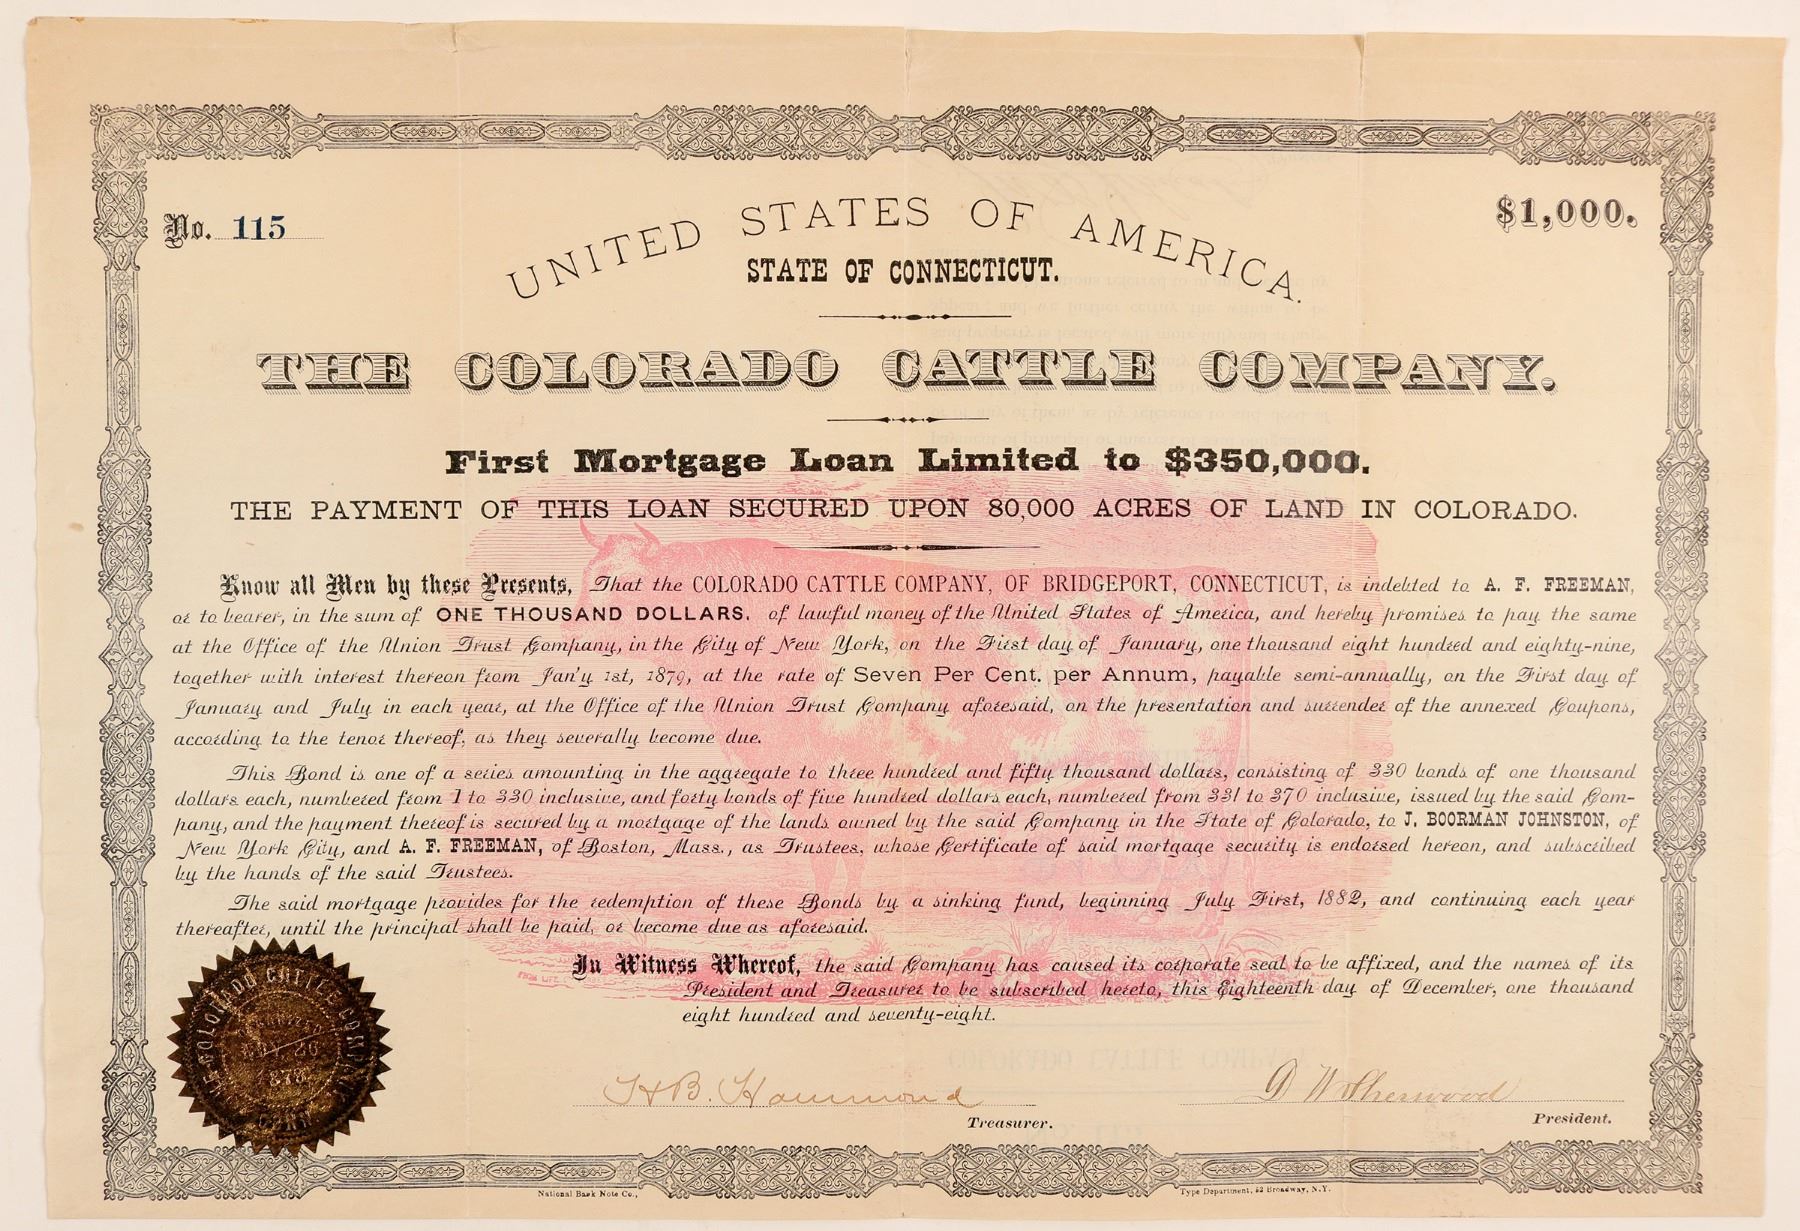 No. 115
$1,000.
UNITED STATES OF AMERICA.
STATE OF CONNECTICUT.
THE COLORADO CATTLE COMPANY.
First Mortgage Loan Limited to $350,000.
THE PAYMENT OF THIS LOAN SECURED UPON 80,000 ACRES OF LAND IN COLORADO.
Know all Men by these Presents, That the COLORADO CATTLE COMPANY, OF BRIDGEPORT, CONNECTICUT, is indebted to A. F. FREEMAN,
or to bearer, in the sum of ONE THOUSAND DOLLARS, of lawful money of the United States of America, and hereby promises to pay the same
at the Office of the Union Trust Company, in the City of New York, on the First day of January, one thousand eight hundred and eighty-nine,
together with interest thereon from Jan'y 1st, 1879, at the rate of Seven Per Cent. per Annum, payable semi-annually, on the First day of
January and July in each year, at the Office of the Union Trust Company aforesaid, on the presentation and surrender of the annexed Coupons,
according to the tenor thereof, as they severally become due.
This Bond is one of a series amounting in the aggregate to three hundred and fifty thousand dollars, consisting of 330 bonds of one thousand
dollars each, numbered from 1 to 330 inclusive, and forty bonds of five hundred dollars each, numbered from 331 to 370 inclusive, issued by the said Com-
pany, and the payment thereof is secured by a mortgage of the lands owned by the said Company in the State of Colorado, to J. BOORMAN JOHNSTON, of
New York City, and A. F. FREEMAN, of Boston, Mass., as Trustees, whose Certificate of said mortgage security is endorsed hereon, and subscribed
by the hands of the said Trustees.
The said mortgage provides for the redemption of these Bonds by a sinking fund, beginning July First, 1882, and continuing each year
thereafter, until the principal shall be paid, or become due as aforesaid.
In Witness Whereof, the said Company has caused its corporate seal to be affixed, and the names of its
President and Treasurer to be subscribed hereto, this Eighteenth day of December, one thousand
eight hundred and seventy-eight.
FROM LIFE
THE COLORADO CATTLE COMPANY
NOV. 26
1878
CONN.
H B. Hammond
Treasurer.
D W Sherwood
President.
National Bank Note Co.,
Type Department, 52 Broadway, N.Y.